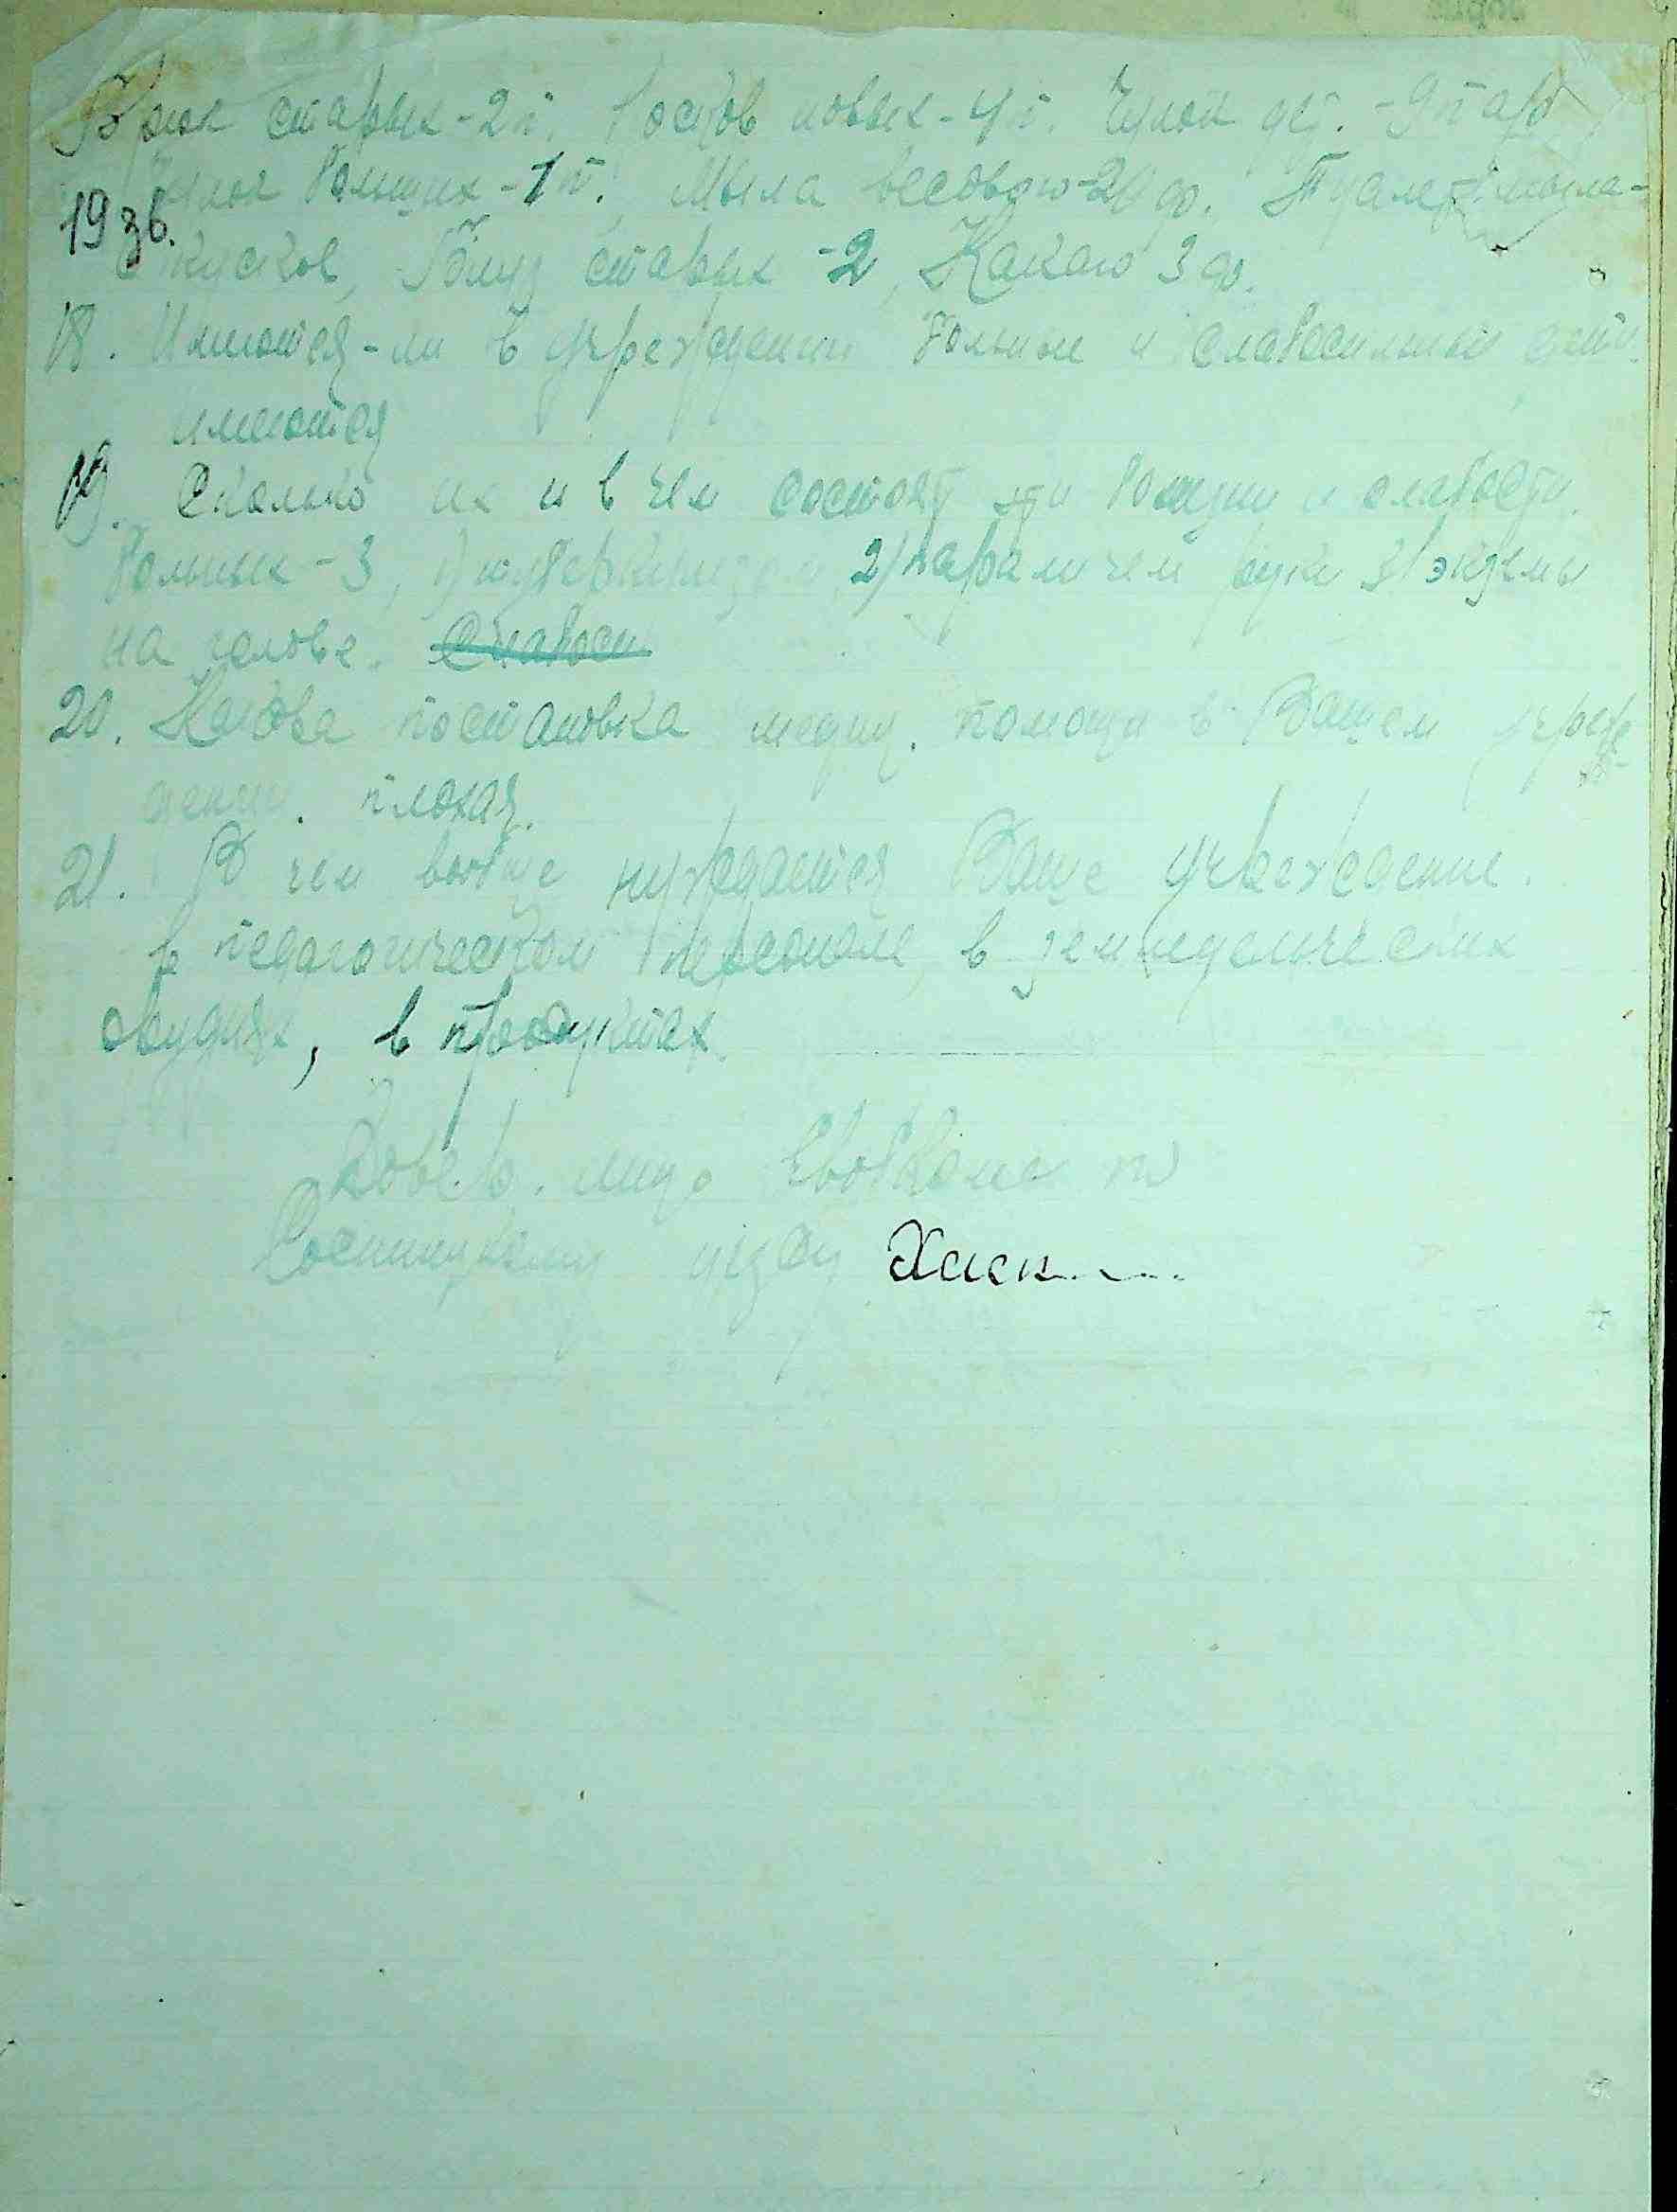 Брюк старых - 2 п. Костюмов новых - 4 п. Чулок дет. - 9 пар
Чулок больших - 1 п. Мыла весового - 20 ф. Туалет. мыла -
19 зв.
кусков, Блуз старых - 2, Какао 3 ф.
18. Имеются-ли в учреждении больные и слабосильные дети.
имеются
19. Сколько их и в чем состоят эти болезни и слабости.
Больных - 3, 1) туберкулезом 2) параличем руки 3) экземы
на голове. Слабост
20. Какова постановка медиц. помощи в Вашем учреж
дении. плохая.
21. В чем вообще нуждается Ваше учреждение.
в педагогическом персонале, в земледельческих
орудиях, в продуктах.
Довер. лицо Евобкома по
Сосницкому уезду